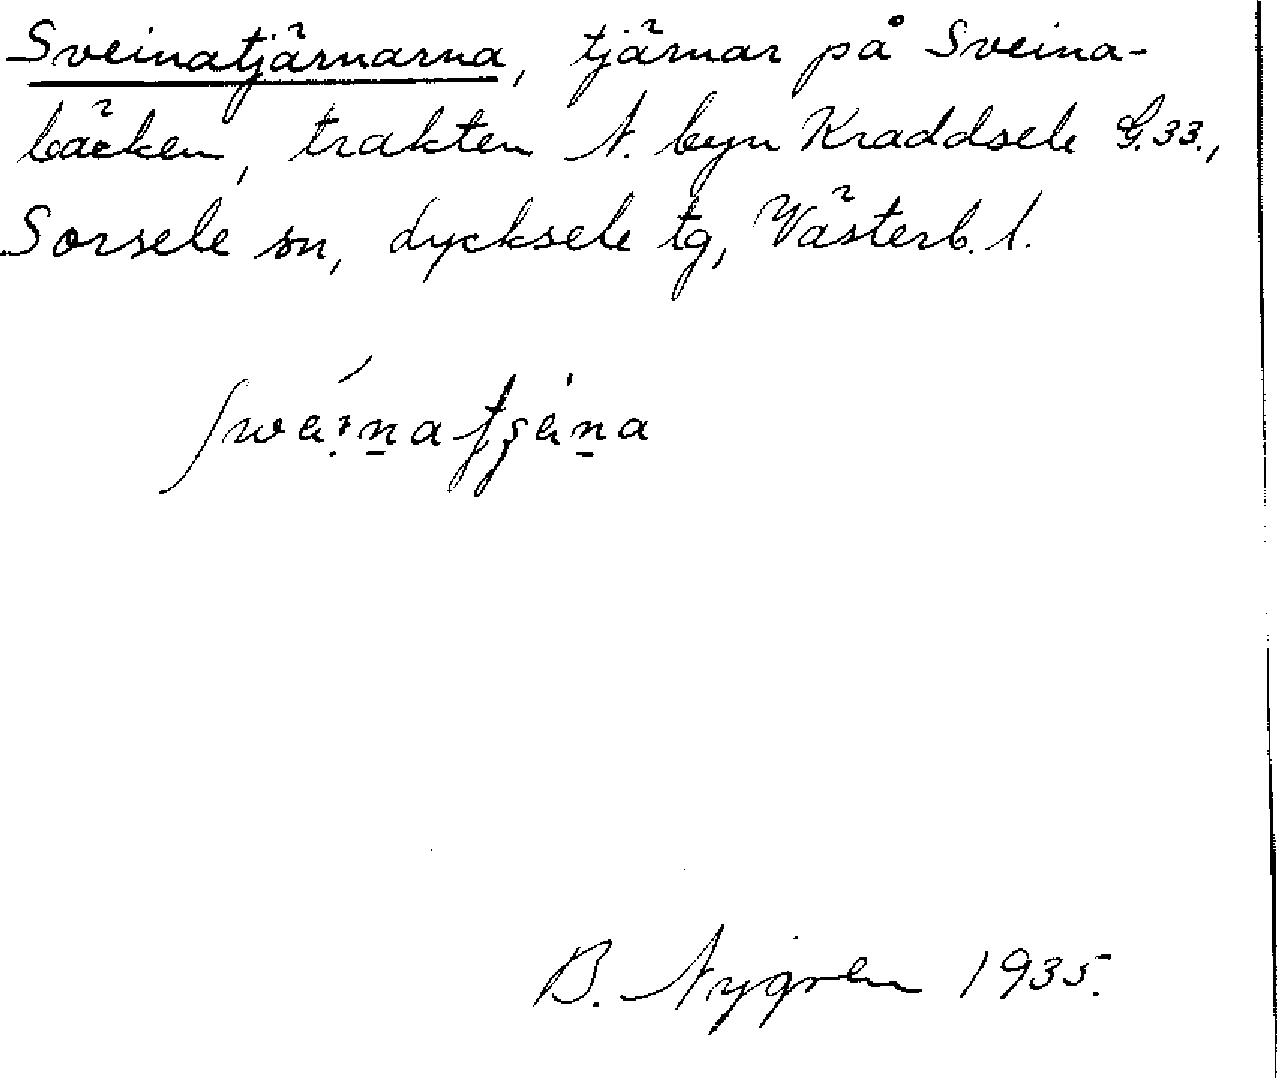 Sveinatjärnarna, tjärnar på Sveina-
bäcken, trakten N. byn Kraddsele G.33.,
Sorsele sn, Lycksele tg, Västerb. l.
B. Nygren 1935.